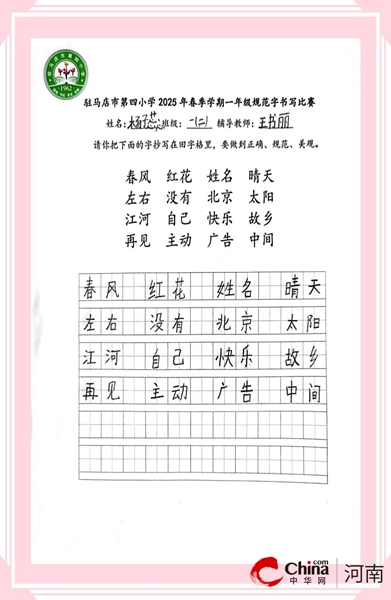 1962
驻马店市第四小学2025年春季学期一年级规范字书写比赛
姓名: 班级: 一(二) 辅导教师: 王书丽
请你把下面的字抄写在田字格里，要做到正确、规范、美观。
春风 红花 姓名 晴天
左右 没有 北京 太阳
江河 自己 快乐 故乡
再见 主动 广告 中间
春风 红花 姓名 晴天
左右 没有 北京 太阳
江河 自己 快乐 故乡
再见 主动 广告 中间
China.com
中华网 河南